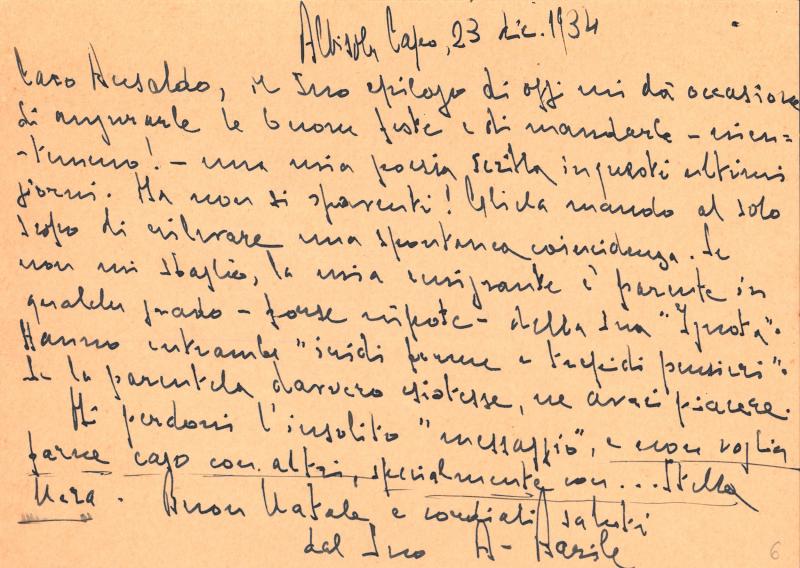 Albisola Capo, 23 dic. 1934
Caro Ansaldo, il Suo epilogo di oggi mi dà occasione
di augurarle le buone feste e di mandarle - nien=
-temeno! - una mia poesia scritta in questi ultimi
giorni. Ma non si spaventi! Gliela mando al solo
scopo di rilevare una spontanea coincidenza. Se
non mi sbaglio, la mia emigrante è parente in
qualche grado - forse nipote - della Sua "Ignota".
Hanno entrambe "iridi ferme e tepidi pensieri".
Se la parentela davvero esistesse, ne avrei piacere.
Mi perdoni l'insolito "messaggio", e non voglia
farne caso con altri, specialmente con... Stella
Nera. Buon Natale e cordiali saluti
dal Suo A. Barile
6